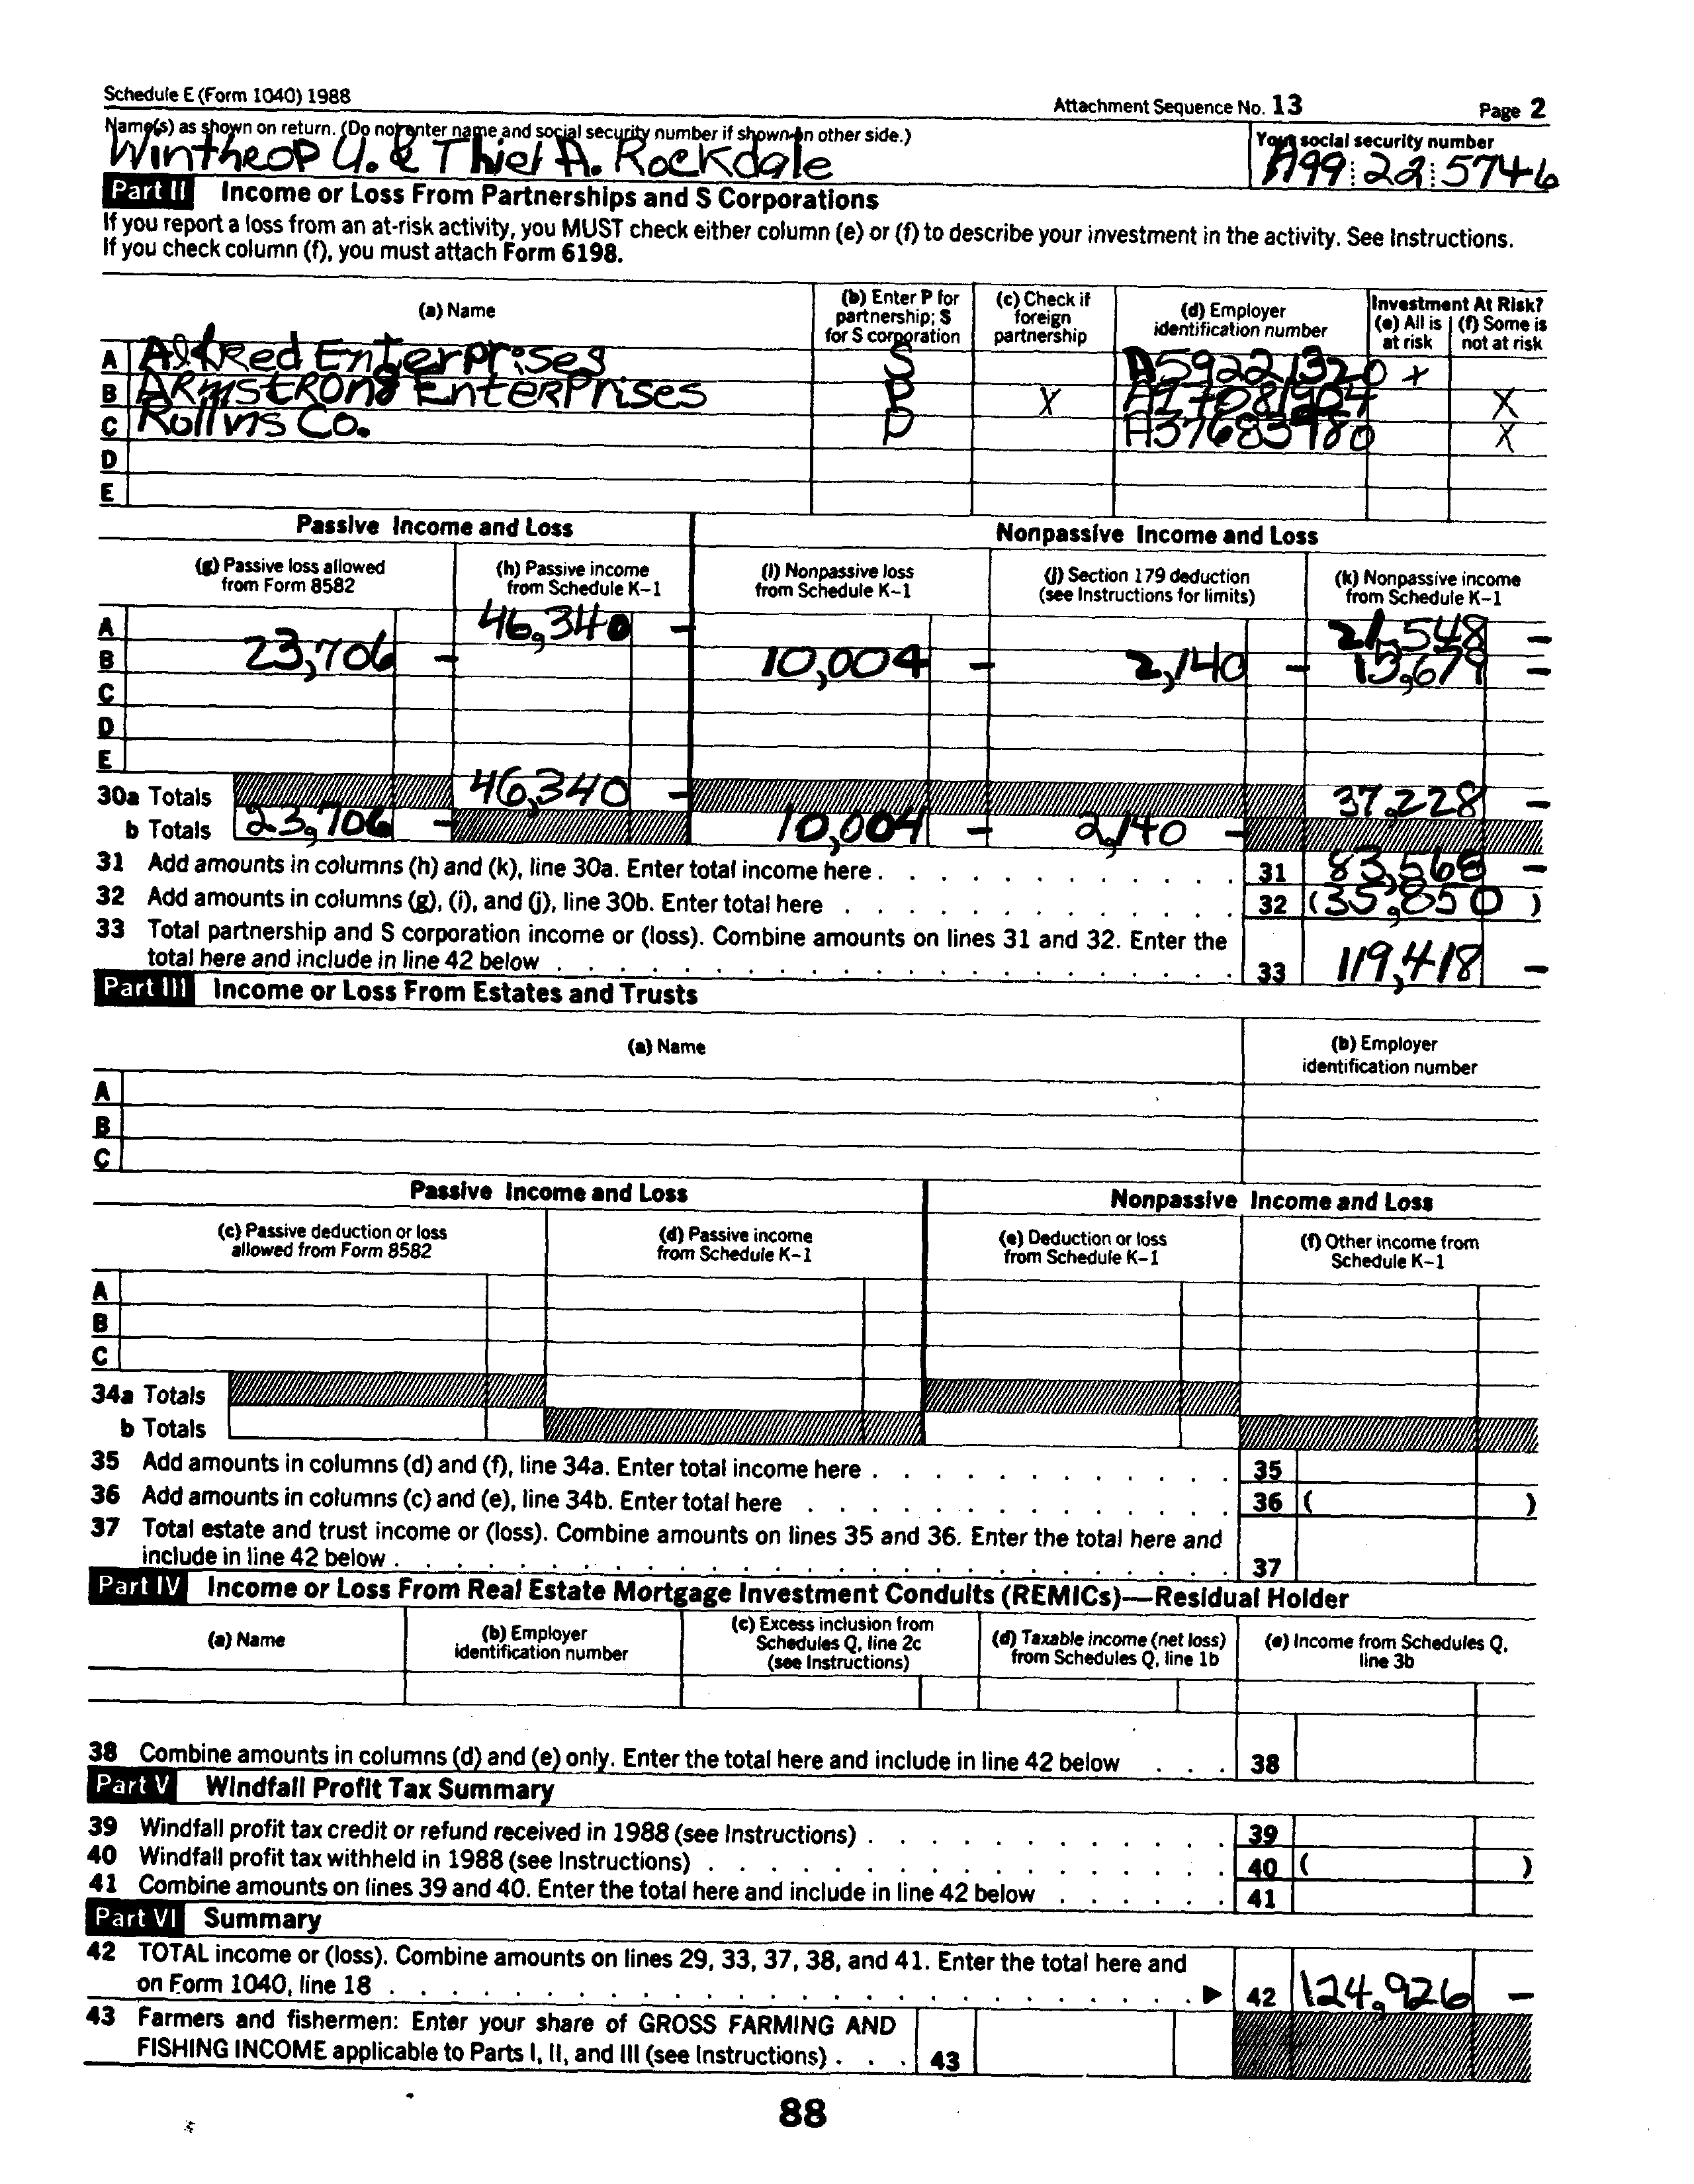 Schedule E (Form 1040) 1988 Attachment Sequence No. 13 Page 2
Name(s) as shown on return. (Do not enter name and social security number if shown on other side.) Your social security number
Winthrop U. & Thiel A. Rockdale A99 22 5746
Part II Income or Loss From Partnerships and S Corporations
If you report a loss from an at-risk activity, you MUST check either column (e) or (f) to describe your investment in the activity. See Instructions.
If you check column (f), you must attach Form 6198.
(a) Name (b) Enter P for partnership; S for S corporation (c) Check if foreign partnership (d) Employer identification number Investment At Risk? (e) All is at risk (f) Some is not at risk
A Alfred Enterprises S A59221320 x
B Armstrong Enterprises P X A17081904 X
C Rollins Co. P A37683980 X
D
E
Passive Income and Loss Nonpassive Income and Loss
(g) Passive loss allowed from Form 8582 (h) Passive income from Schedule K-1 (i) Nonpassive loss from Schedule K-1 (j) Section 179 deduction (see Instructions for limits) (k) Nonpassive income from Schedule K-1
A 46,340 - 21,548 -
B 23,706 - 10,004 - 2,140 - 15,679 -
C
D
E
30a Totals 46,340 - 37,228 -
b Totals 23,706 - 10,004 - 2,140 -
31 Add amounts in columns (h) and (k), line 30a. Enter total income here . 31 83,568 -
32 Add amounts in columns (g), (i), and (j), line 30b. Enter total here . 32 (35,850)
33 Total partnership and S corporation income or (loss). Combine amounts on lines 31 and 32. Enter the
total here and include in line 42 below . 33 119,418 -
Part III Income or Loss From Estates and Trusts
(a) Name (b) Employer identification number
A
B
C
Passive Income and Loss Nonpassive Income and Loss
(c) Passive deduction or loss allowed from Form 8582 (d) Passive income from Schedule K-1 (e) Deduction or loss from Schedule K-1 (f) Other income from Schedule K-1
A
B
C
34a Totals
b Totals
35 Add amounts in columns (d) and (f), line 34a. Enter total income here . 35
36 Add amounts in columns (c) and (e), line 34b. Enter total here . 36 ( )
37 Total estate and trust income or (loss). Combine amounts on lines 35 and 36. Enter the total here and
include in line 42 below . 37
Part IV Income or Loss From Real Estate Mortgage Investment Conduits (REMICs)—Residual Holder
(a) Name (b) Employer identification number (c) Excess inclusion from Schedules Q, line 2c (see Instructions) (d) Taxable income (net loss) from Schedules Q, line 1b (e) Income from Schedules Q, line 3b
38 Combine amounts in columns (d) and (e) only. Enter the total here and include in line 42 below . . . 38
Part V Windfall Profit Tax Summary
39 Windfall profit tax credit or refund received in 1988 (see Instructions) . 39
40 Windfall profit tax withheld in 1988 (see Instructions) . 40 ( )
41 Combine amounts on lines 39 and 40. Enter the total here and include in line 42 below . 41
Part VI Summary
42 TOTAL income or (loss). Combine amounts on lines 29, 33, 37, 38, and 41. Enter the total here and
on Form 1040, line 18 . ▶ 42 124,926 -
43 Farmers and fishermen: Enter your share of GROSS FARMING AND
FISHING INCOME applicable to Parts I, II, and III (see Instructions) . . . 43
88